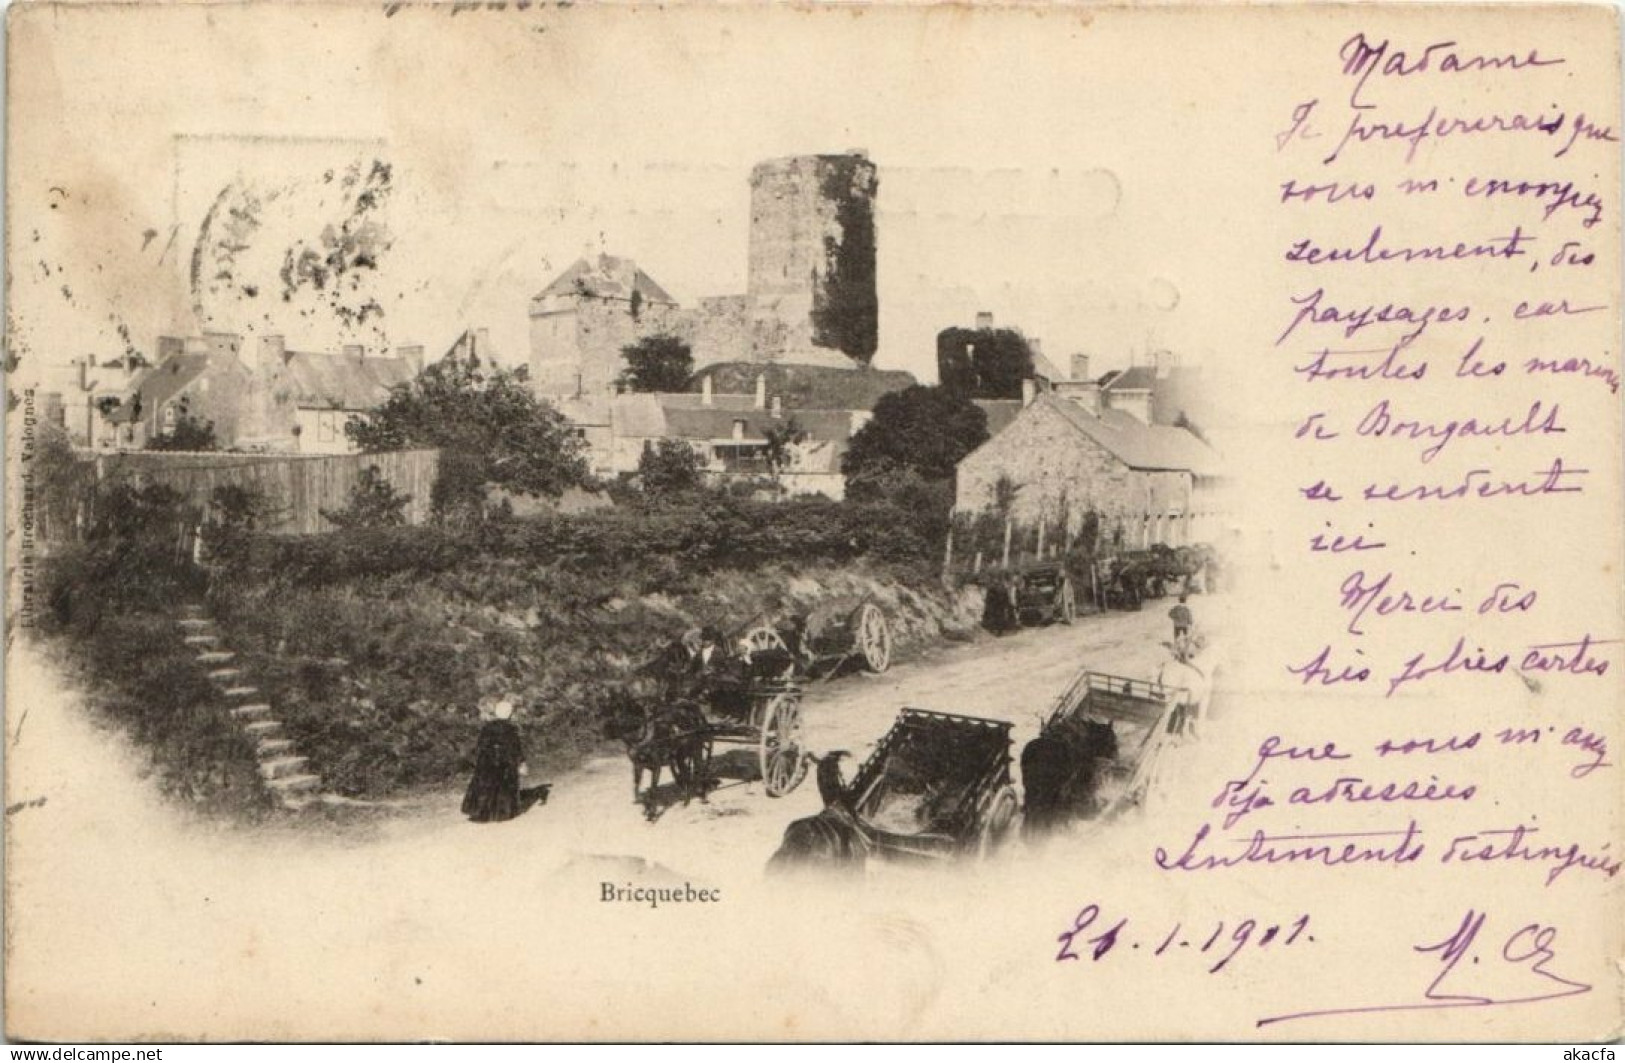 Madame
Je prefererais que
vous m'envoyiez
seulement, des
paysages. car
toutes les marines
de Bougault
se vendent
ici.
Merci des
très jolies cartes
que vous m'avez
déja adressées.
Sentiments distingués
21.1.1901.
Bricquebec
Librairie Brochard, Valognes.
www.delcampe.net
akacfa